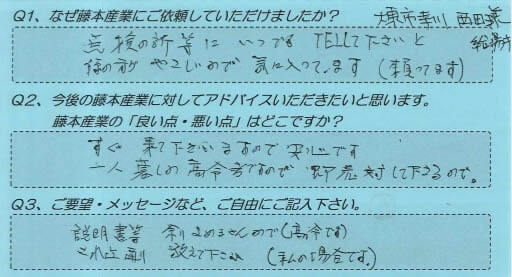 Q1、なぜ藤本産業にご依頼していただけましたか？ 堺市 西田様
給湯
故障の折等に いつでも TELL下さいと
気に入っています (頼ってます)
Q2、今後の藤本産業に対してアドバイスいただきたいと思います。
藤本産業の「良い点・悪い点」はどこですか？
すぐ 来て下さいますので 安心です
一人暮しの高令者ですので 即 対 して下さるので。
Q3、ご要望・メッセージなど、ご自由にご記入下さい。
説明書等 よめませんので(高令です)
教えて下さい (私の場合です。)